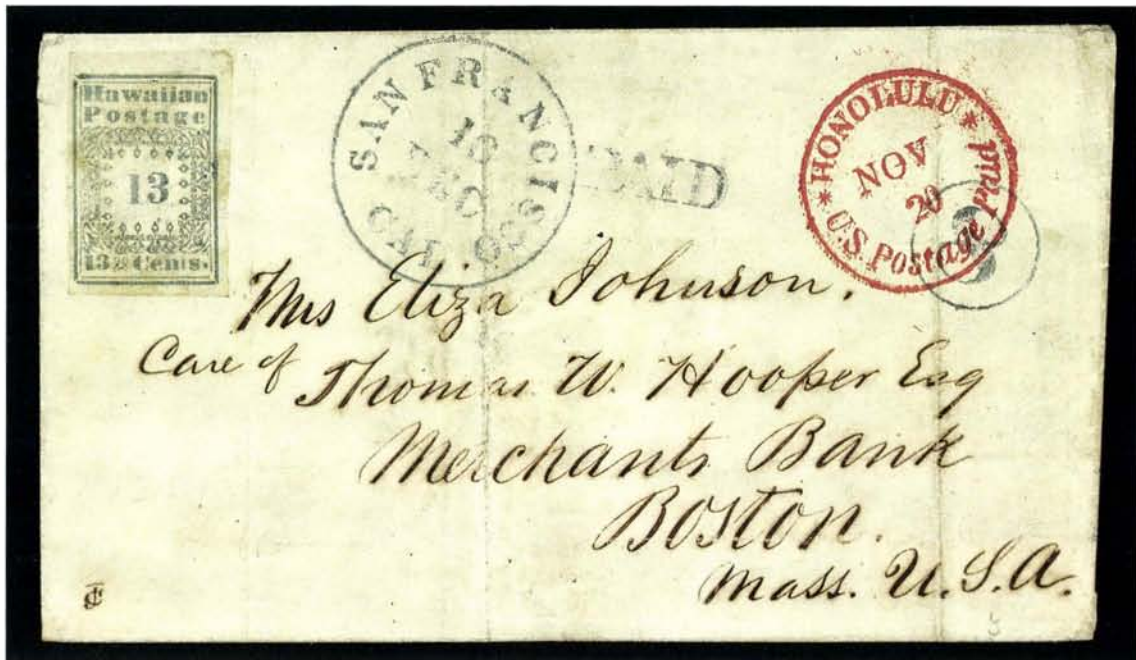 Hawaiian
Postage
13
13 Cents.
SAN FRANCISCO
CAL
PAID
* HONOLULU *
NOV
20
U.S. Postage Paid
Mrs Eliza Johnson.
Care of
Thomas W. Hooper Esq
Merchants Bank
Boston.
Mass. U.S.A.